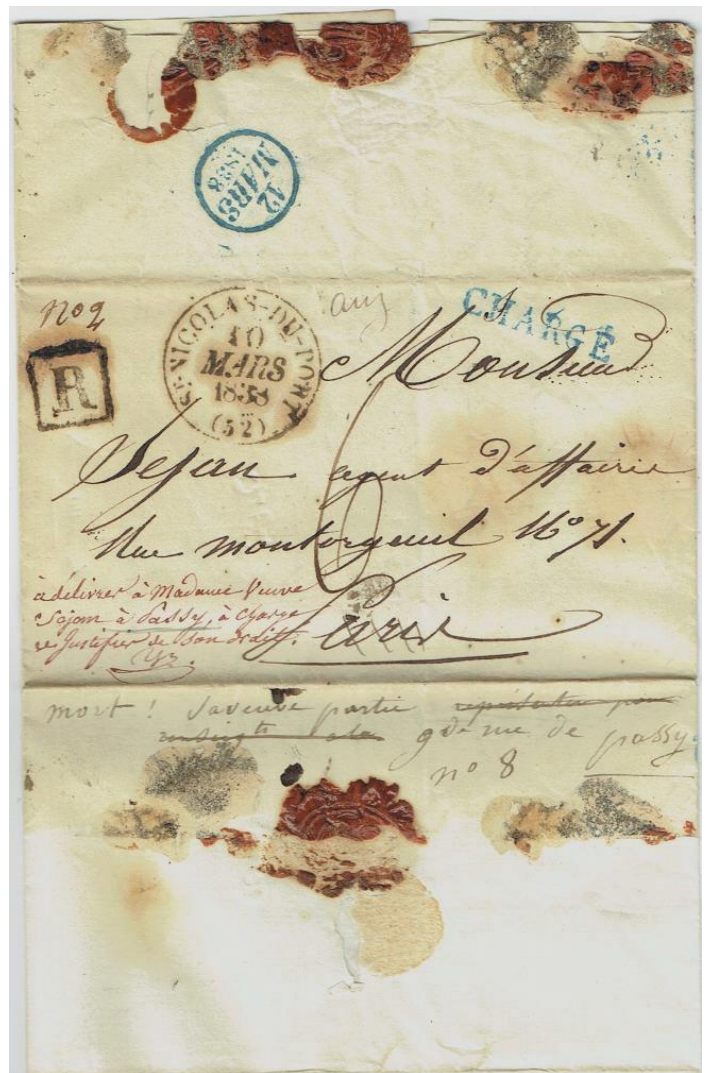 12
MARS
1838
no 2
R
ST-NICOLAS-DU-PORT
10
MARS
1838
(52)
CHARGÉ
Monsieur
Sejan agent d'affaires
Rue montorgueil No 71.
6
Paris
à délivrer à Madame Veuve
Sejan à Passy, à charge
de justifier de son droit.
mort ! sa veuve partie
gde rue de passy
no 8